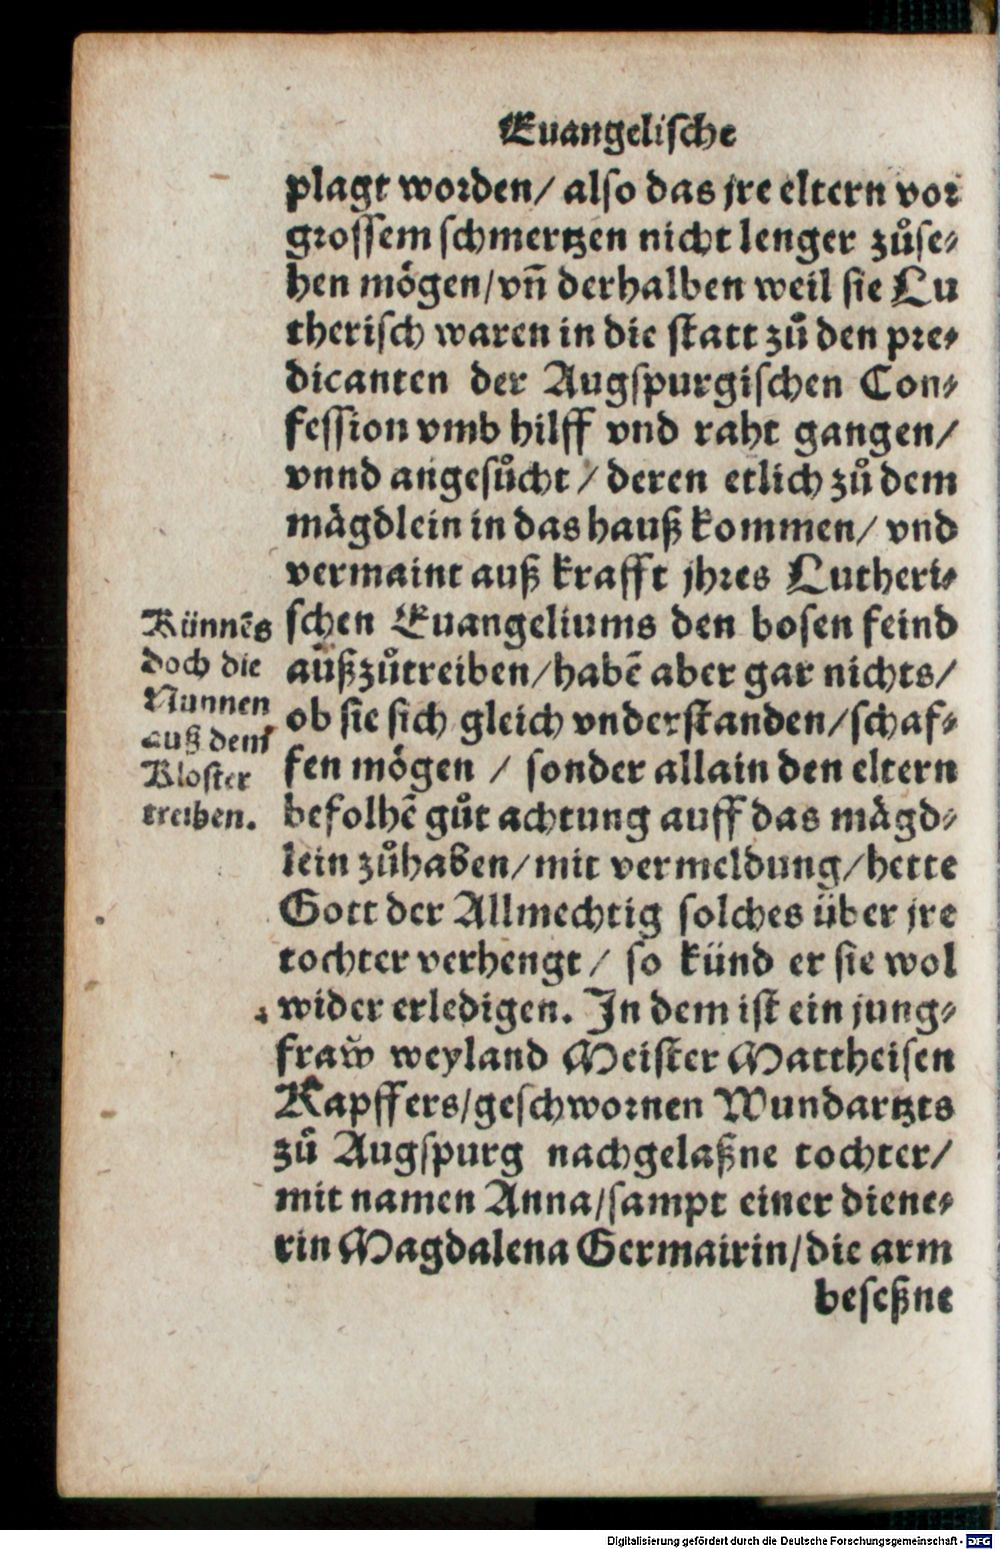 Euangelische
plagt worden/ also das jre eltern vor
grossem schmertzen nicht lenger zůse⸗
hen mögen/vñ derhalben weil sie Lu
therisch waren in die statt zů den pre⸗
dicanten der Augspurgischen Con⸗
fession vmb hilff vnd raht gangen/
vnnd angesůcht / deren etlich zů dem
mägdlein in das hauß kommen/ vnd
vermaint auß krafft jhres Lutheri⸗
schen Euangeliums den bosen feind
außzůtreiben/habē aber gar nichts/
ob sie sich gleich vnderstanden/schaf⸗
fen mögen / sonder allain den eltern
befolhē gůt achtung auff das mägd⸗
lein zůhaben/mit vermeldung/hette
Gott der Allmechtig solches über jre
tochter verhengt/ so künd er sie wol
wider erledigen. In dem ist ein jung⸗
fraw̆ weyland Meister Mattheisen
Kapffers/geschwornen Wundartzts
zů Augspurg nachgelaßne tochter/
mit namen Anna/sampt einer diene⸗
rin Magdalena Germairin/die arm
beseßne
Künnēs
doch die
Nunnen
auß dem
Kloster
treiben.
Digitalisierung gefördert durch die Deutsche Forschungsgemeinschaft - DFG